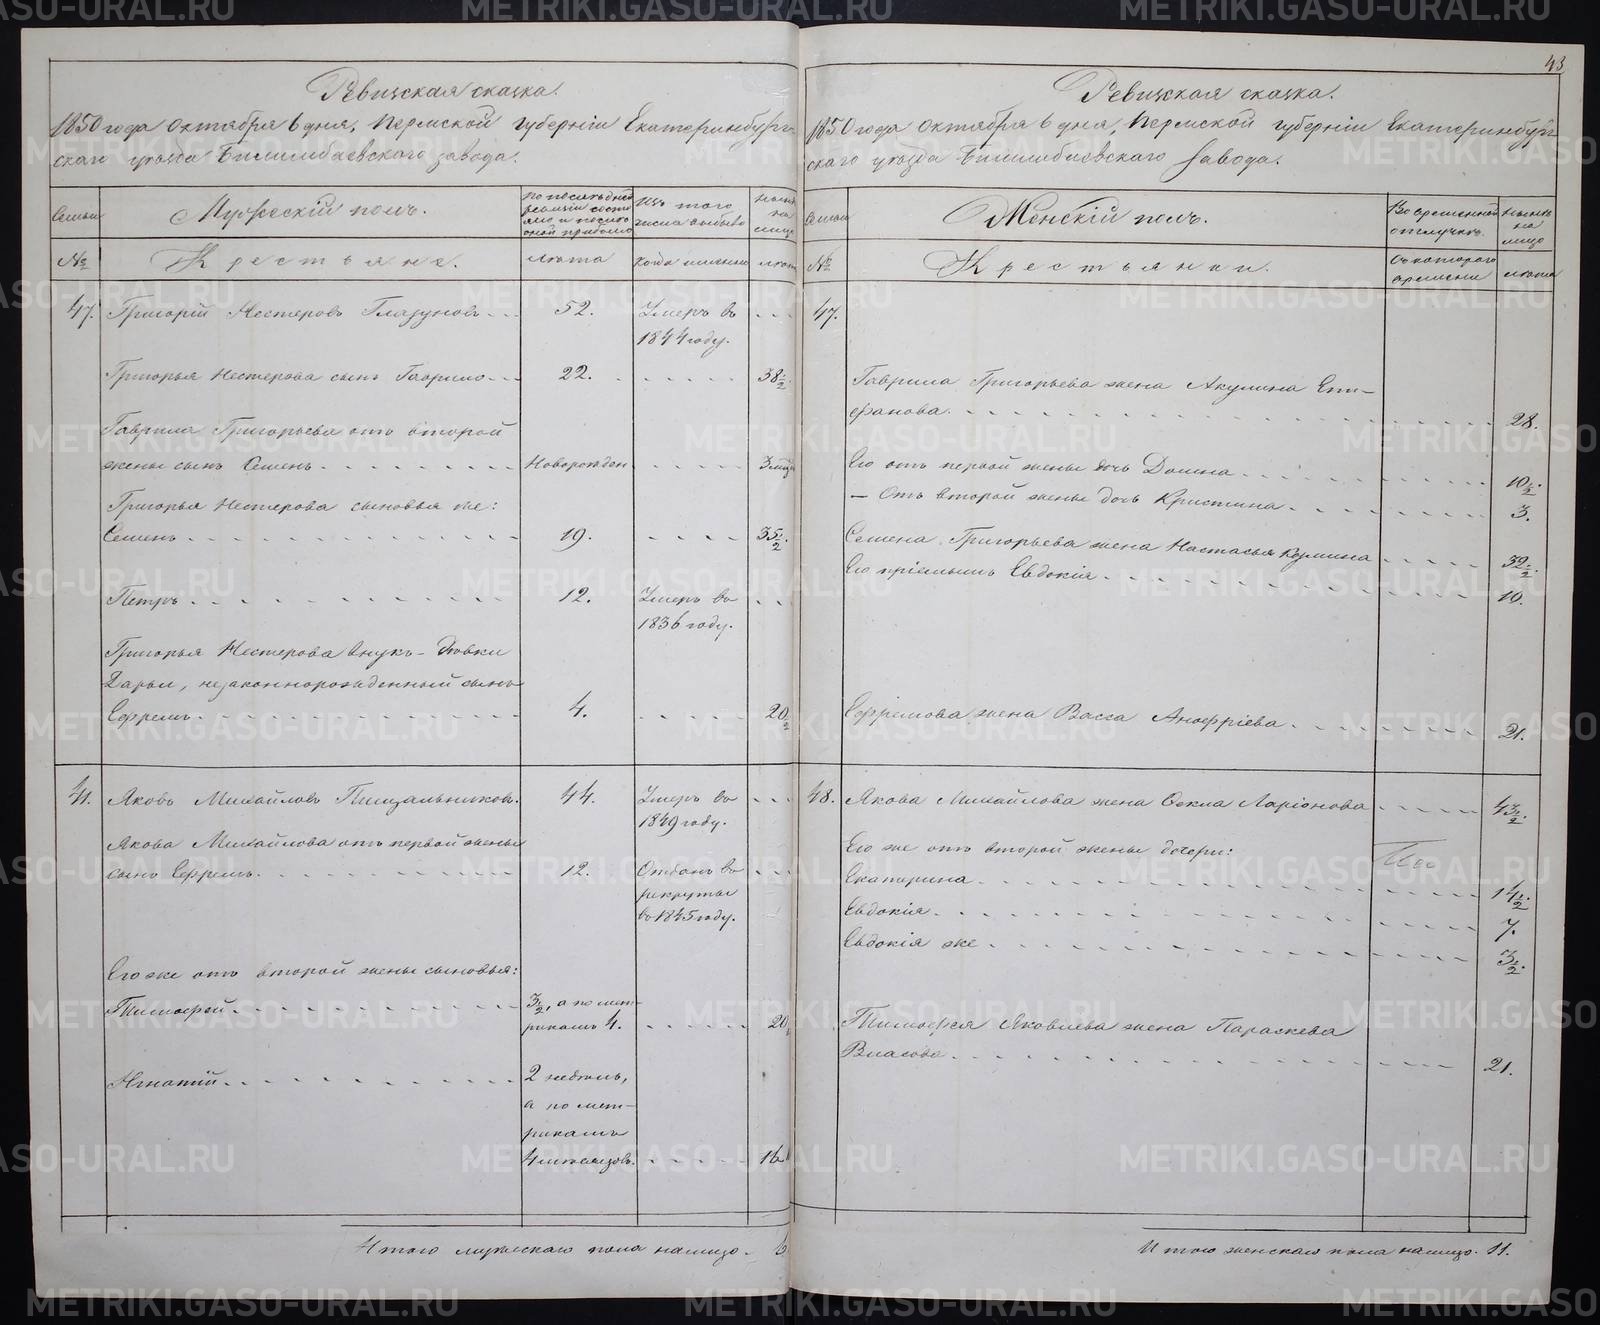 Ревизская сказка.
1850 года Октября 6 дня, Пермской губерніи Екатеринбург-
скаго уѣзда Билимбаевскаго завода.
Семьи
Мужескій полъ.
По послѣдней
ревизіи состо
яло и послѣ
оной прибыло
Изъ того
числа выбыло
Нынѣ
на
лицо
№
Крестьяне.
лѣта
когда именно
лѣта
47.
Григорій Нестеровъ Глазуновъ
52.
Умеръ въ
1844 году.
Григорья Нестерова сынъ Гаврило
22.
38 1/2.
Гаврила Григорьева отъ второй
жены сынъ Семенъ
Новорожден
3 мѣс
Григорья Нестерова сыновья же:
Семенъ
19.
35 1/2.
Петръ
12.
Умеръ въ
1836 году.
Григорья Нестерова внукъ - дѣвки
Дарьи, незаконнорожденный сынъ
Ефремъ
4.
20 1/2
Яковъ Михайловъ Пищальниковъ.
44.
Умеръ въ
1849 году.
Якова Михайлова отъ первой жены
сынъ Ефремъ.
12.
Отданъ въ
рекруты
въ 1845 году.
Его же отъ второй жены сыновья:
Тимофей
3 1/2, а по мет-
рикамъ 4.
20
Игнатій
2 недѣль,
а по мет-
рикамъ
4 мѣсяцовъ.
16
Итого мужескаго пола налицо. 6
43
Ревизская сказка.
1850 года Октября 6 дня, Пермской губерніи Екатеринбург
скаго уѣзда Билимбаевскаго завода.
Семьи
Женскій полъ.
Во временной
отлучкѣ.
Нынѣ
на
лицо
№
Крестьянки.
Съ котораго
времени
лѣта
47.
Гаврила Григорьева жена Акулина Епи-
фанова.
28.
Его отъ первой жены дочь Домна
10 1/2.
— Отъ второй жены дочь Кристина
3.
Семена Григорьева жена Настасья Козмина
32 1/2.
Его пріемышъ Евдокія
10.
Ефремова жена Васса Анофріева
21.
48.
Якова Михайлова жена Фекла Ларіонова
43 1/2.
Его же отъ второй жены дочери:
Екатерина
14 1/2.
Евдокія
7.
Евдокія же
3 1/2.
Тимофея Яковлева жена Параскева
Власова
21.
Итого женскаго пола налицо. 11.
METRIKI.GASO-URAL.RU